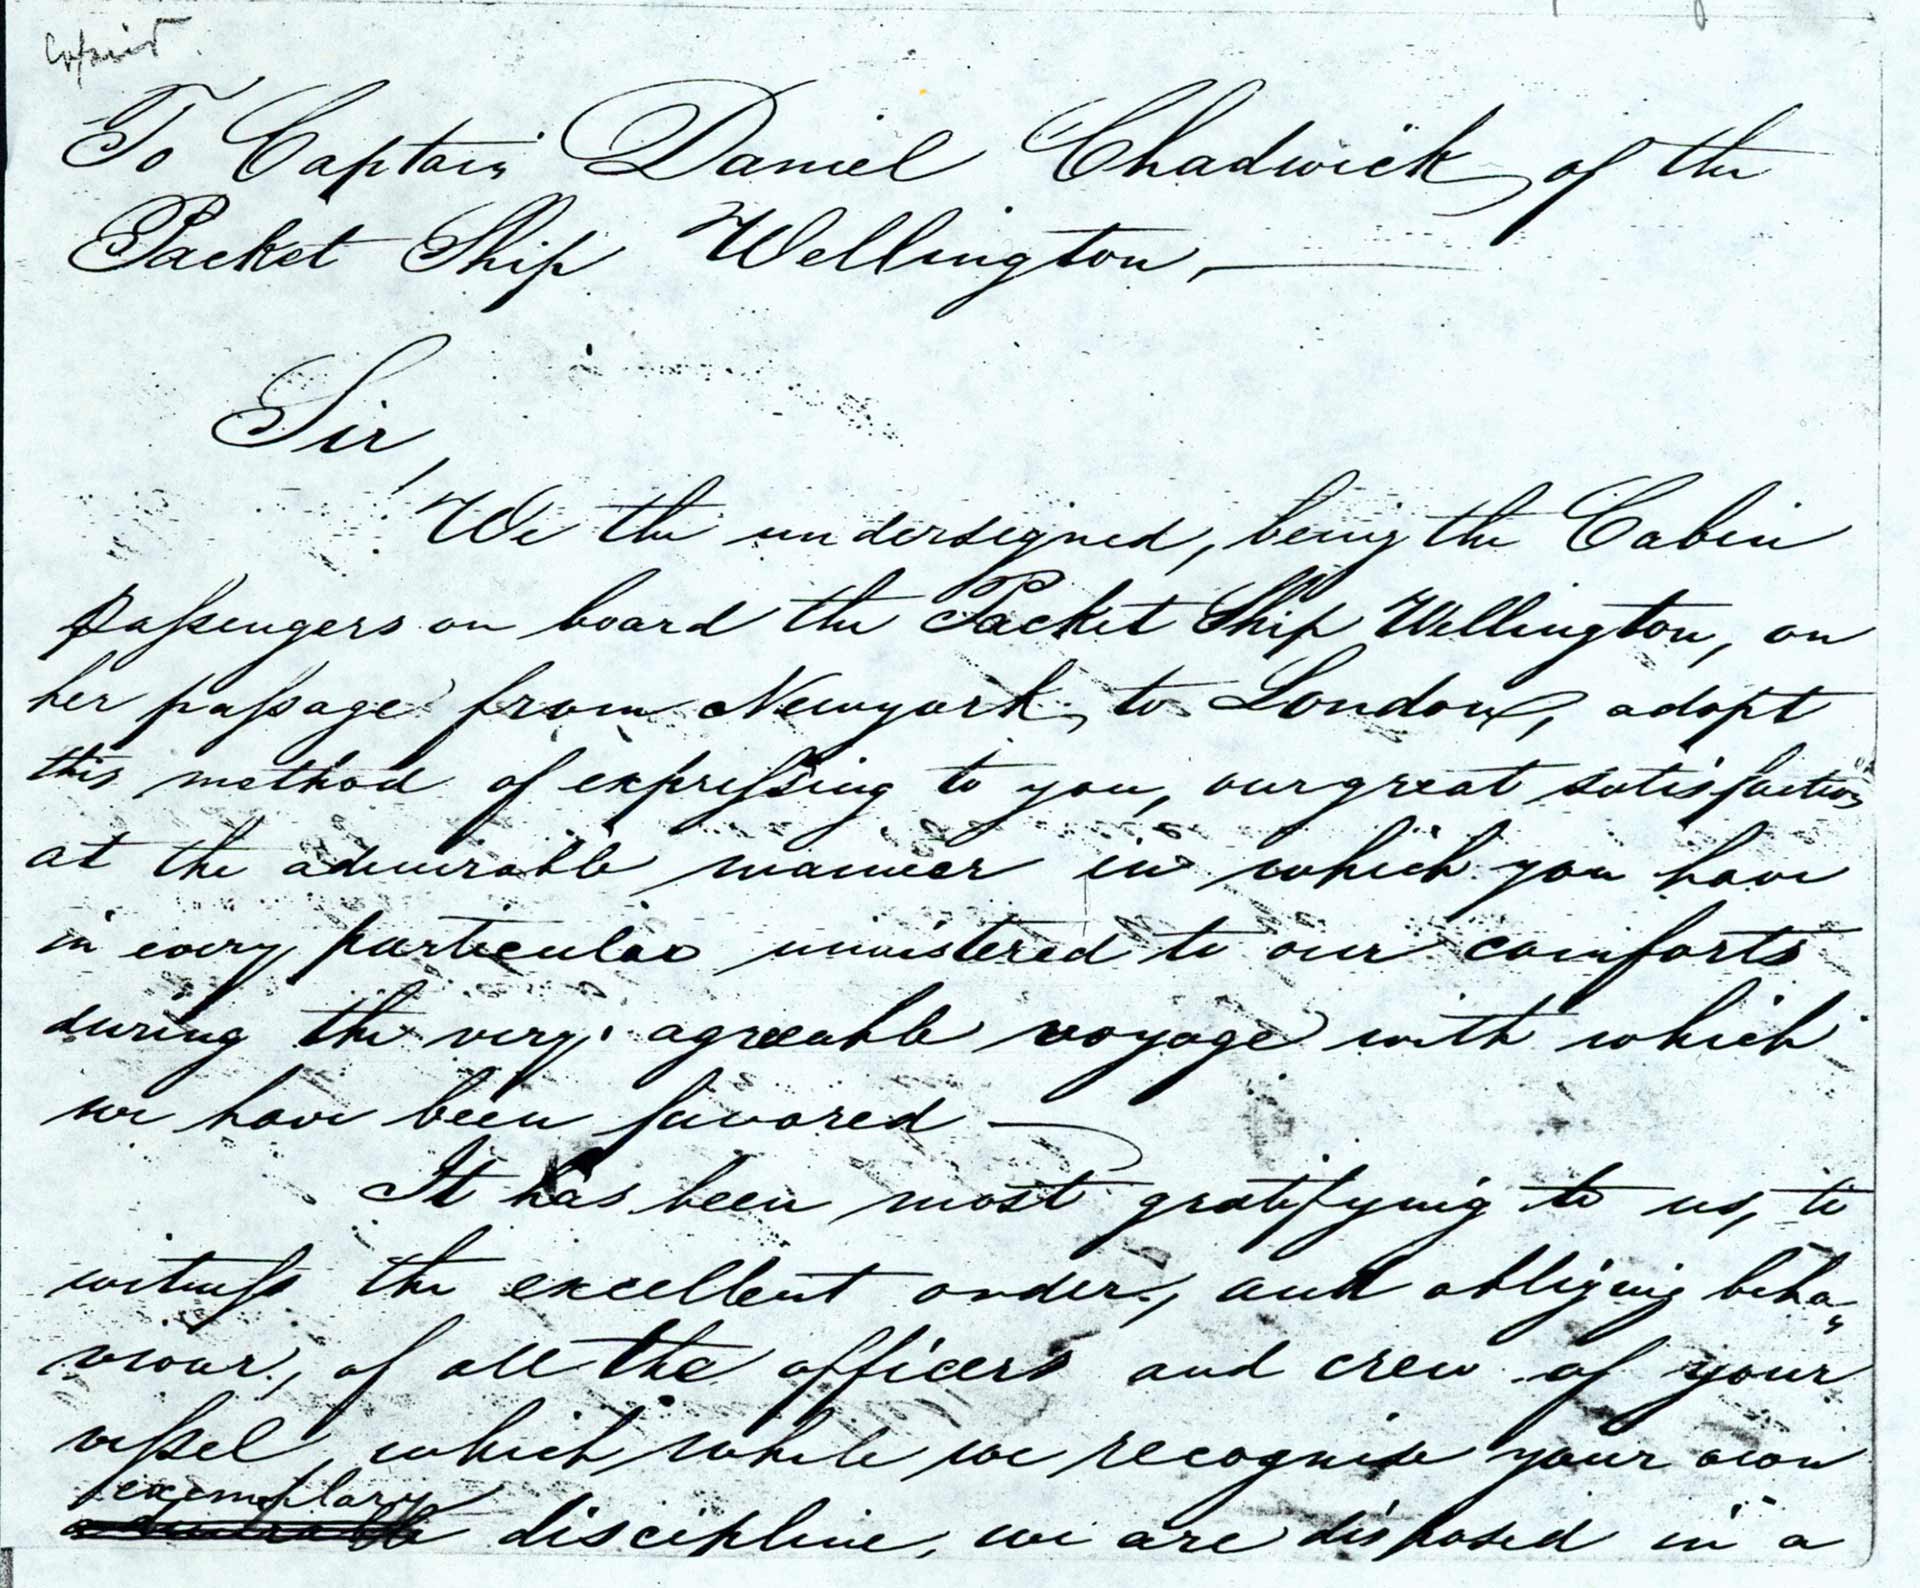 To Captain Daniel Chadwick, of the
Packet Ship Wellington,
Sir,
We the undersigned, being the Cabin
passengers on board the Packet Ship Wellington, on
her passage from Newyork, to London, adopt
this method of expressing to you, our great satisfaction
at the admirable manner in which you have
in every particular ministered to our comforts
during the very agreeable voyage with which
we have been favored —
It has been most gratifying to us, to
witness the excellent order, and obliging beha-
viour, of all the officers and crew of your
vessel, which, while we recognise your own
exemplary
admirable discipline, we are disposed in a